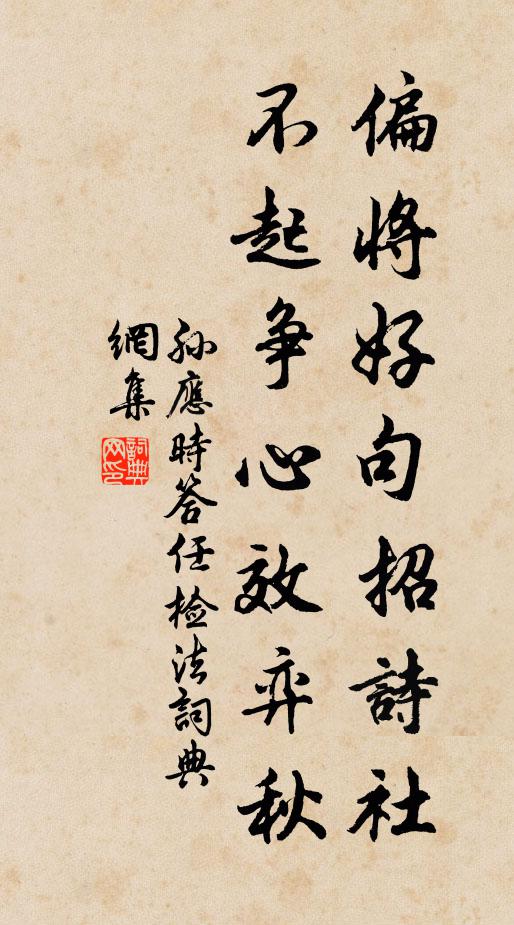 偏將好句招詩社
不起爭心效弈秋
孫應時答任檢法詞典
網集
詞典
网印